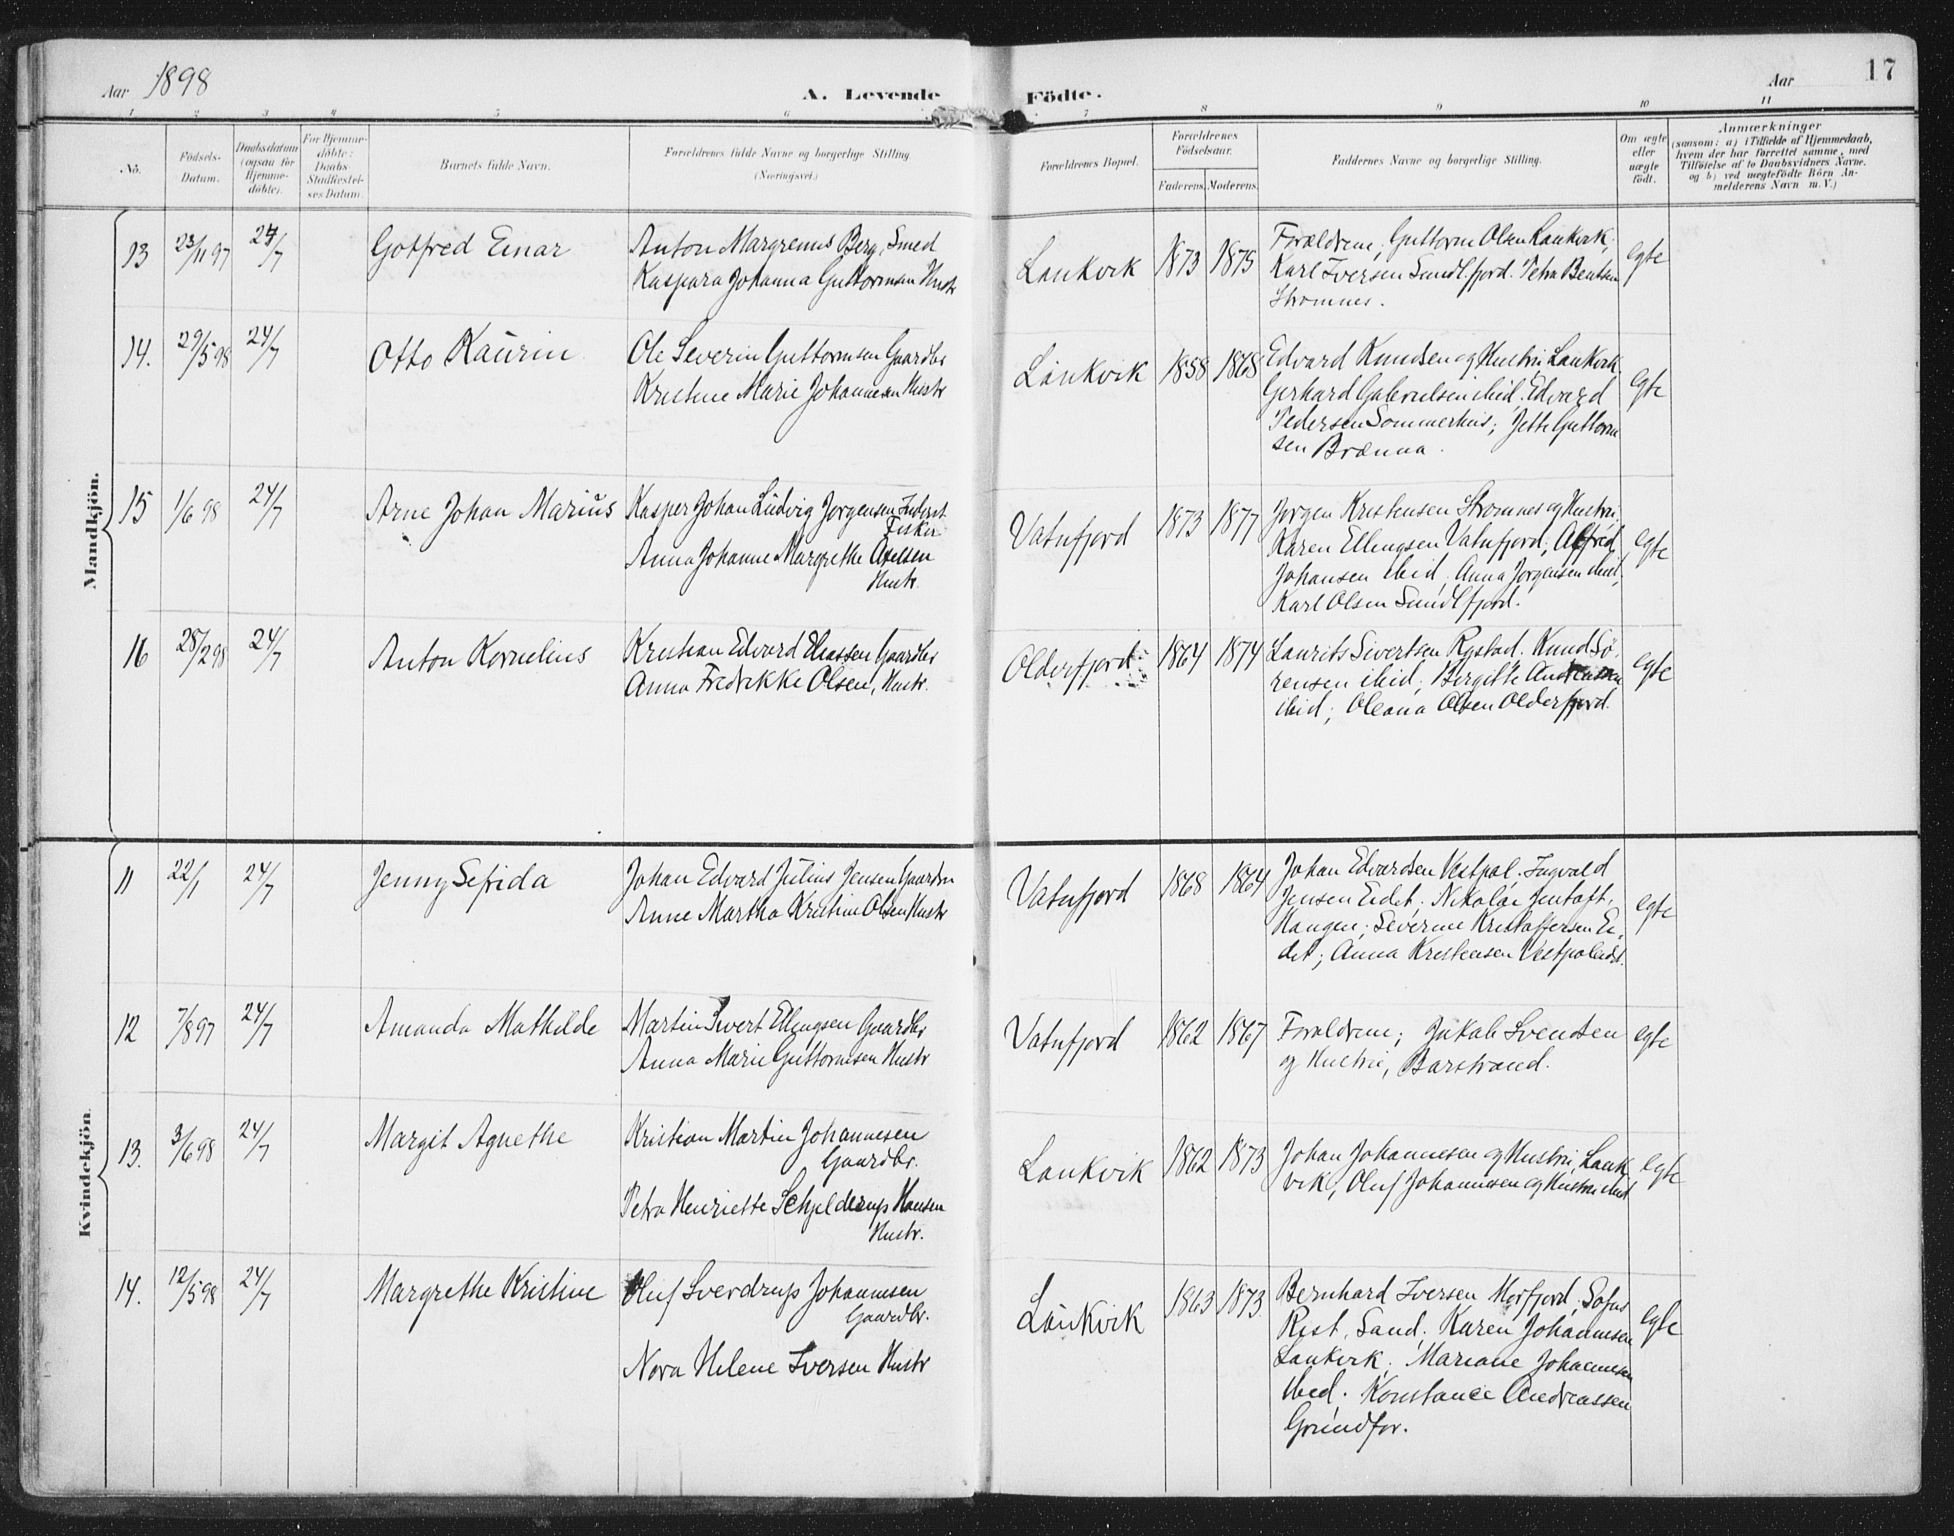 Aar 1898
A. Levende Födte.
Aar
17
1 2 3 4 5 6 7 8 9 10 11
No.
Födsels-
Datum.
Daabsdatum
(ogsaa for
Hjemme-
döbte).
For Hjemme-
döbte:
Daabs-
Stadfæstel-
ses Datum.
Barnets fulde Navn.
Forældrenes fulde Navne og borgerlige Stilling
(Næringsvei.)
Forældrenes Bopæl.
Forældrenes
Födselsaar.
Faderens. Moderens.
Faddernes Navne og borgerlige Stilling.
Om ægte
eller
uægte
födt.
Anmærkninger
(saasom: a) i Tilfælde af Hjemmedaab,
hvem der har forrettet samme, med
Tilföielse af to Daabsvidners Navne.
og b) ved uægtefödte Börn An-
melderens Navn m. V.)
Mandkjön.
13 23/11 97 24/7 Gotfred Einar
Anton Margrenus Berg, Smed
Kaspara Johanna Guttormsen Hustr
Laukvik 1873 1875
Forældrene; Guttorm Olsen Laukvik;
Karl Iversen Sundlfjord. Petra Bentsen
Strømnes.
egte
14. 29/5 98 24/7 Otto Kaurin
Ole Severin Guttormsen Gaardbr
Kristine Marie Johannesen Hustr
Laukvik 1858 1868
Edvard Knudsen og Hustru, Laukvik
Gerhard Gabrielsen ibid. Edvard
Pedersen Sommerhus; Jette Guttorm
sen Brænna.
egte
15 1/6 98 24/7 Arne Johan Marius
Kasper Johan Ludvig Jørgensen Inderst
Fisker
Anna Johanne Margrethe Axelsen
Hustr.
Vatnfjord 1873 1877
Jørgen Kristensen Strømnes og Hustru
Karen Ellingsen Vatnfjord; Alfred
Johansen ibid; Anna Jørgensen ibid,
Karl Olsen Sundlfjord.
egte
16 28/2 98 24/7 Anton Kornelius
Kristian Edvard Eliassen Gaardbr
Anna Fredrikke Olsen, Hustr.
Olderfjord 1864 1874
Laurits Sivertsen Rystad. Knud Sø-
rensen ibid; Birgitte Andreassen
ibid; Oleana Olsen Olderfjord.
egte
Kvindekjön.
11 22/1 24/7 Jenny Sefrida
Johan Edvard Julius Jensen Gaardbr
Anne Martha Kristine Olsen Hustr
Vatnfjord 1868 1864
Johan Edvardsen Vestpol. Ingvald
Jensen Eidet; Nikolai Jentoft,
Haugen; Severine Kristoffersen Ei-
det; Anna Kristensen Vestpolen
egte
12 7/8 97 24/7 Amanda Mathilde
Martin Sivert Ellingsen Gaardbr
Anna Marie Guttormsen Hustr
Vatnfjord 1862 1867
Forældrene; Jakob Svendsen
og Hustru, Barstrand.
egte
13. 3/6 98 24/7 Margit Agnethe
Kristian Martin Johannesen
Gaardbr.
Petra Henriette Schjelderup Hansen
Hustr.
Laukvik 1862 1873
Johan Johannesen og Hustru, Lauk
vik, Oluf Johannesen og Hustru ibid
egte
14. 12/5 98 24/7 Margrethe Kristine
Oluf Sverdrup Johannesen
Gaardbr.
Nora Helene Iversen Hustr
Laukvik 1863 1873
Bernhard Iversen Morfjord; Sofus
Rist, Sand; Karen Johannesen
Laukvik; Mariane Johannesen
ibid; Konstance Andreassen
Grundfor.
egte